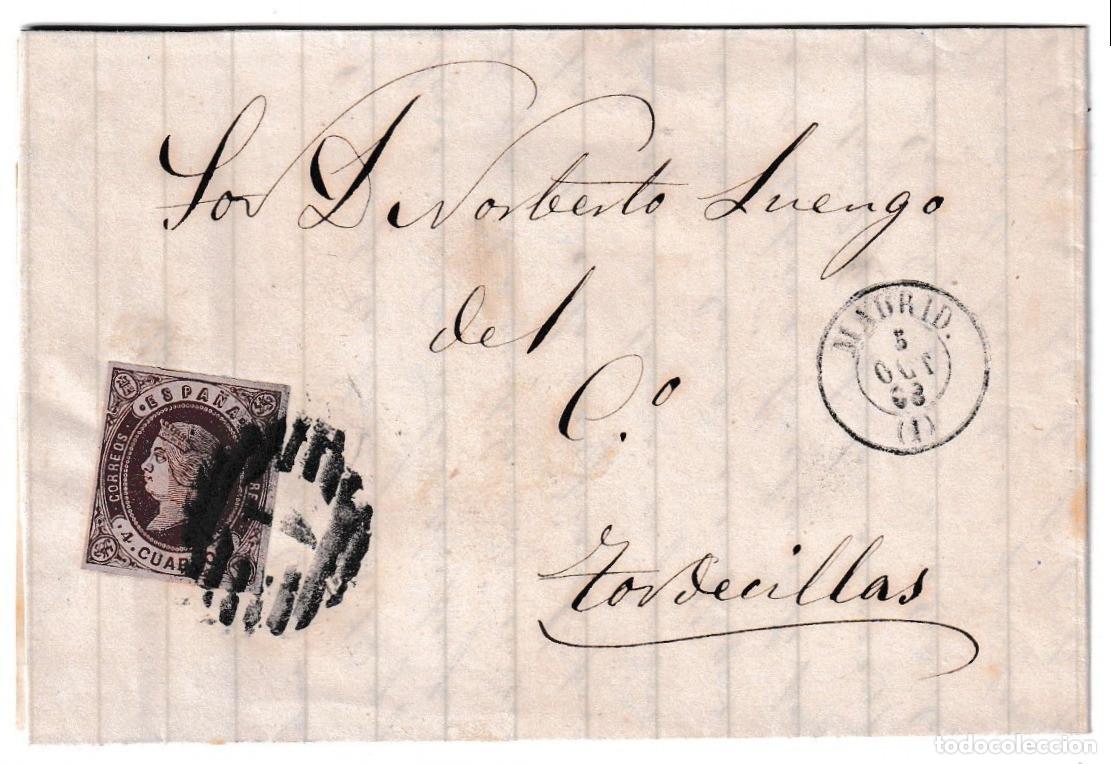 Sor D Norberto Luengo
del
C.º
Tordecillas
MADRID.
5
OCT
63
(1)
CORREOS
ESPAÑA
4. CUAR
todocoleccion